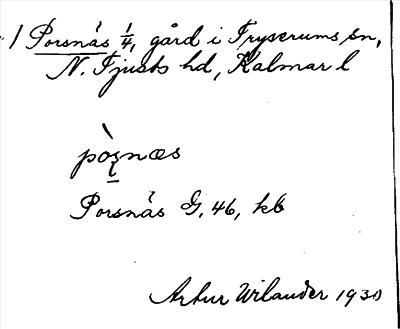 Porsnäs 1/4, gård i Tryserums sn,
N. Tjusts hd, Kalmar l
pòʂnæs
Porsnäs G, 46, kb
Artur Wilander 1930